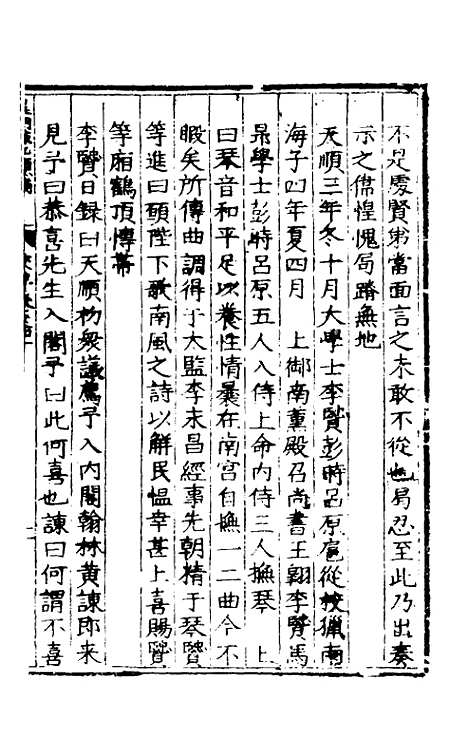 不是處賢弟當面言之未敢不從也曷忍至此乃出奏
示之儒惶愧局蹐無地
天順三年冬十月大學士李賢彭時呂原扈從校獵南
海子四年夏四月　上御南薰殿召尚書王翺李賢馬
昂學士彭時呂原五人入侍上命內侍三人撫琴　上
曰琴音和平足以養性情曩在南宮自撫一二曲今不
暇矣所傳曲調得于太監李永昌經事先朝精于琴賢
等進曰願陛下歌南風之詩以解民慍幸甚上喜賜賢
等廂鶴頂博帶
李賢日錄曰天順初衆議薦予入內閣翰林黃諫郎來
見予曰恭喜先生入閣予曰此何喜也諫曰何謂不喜